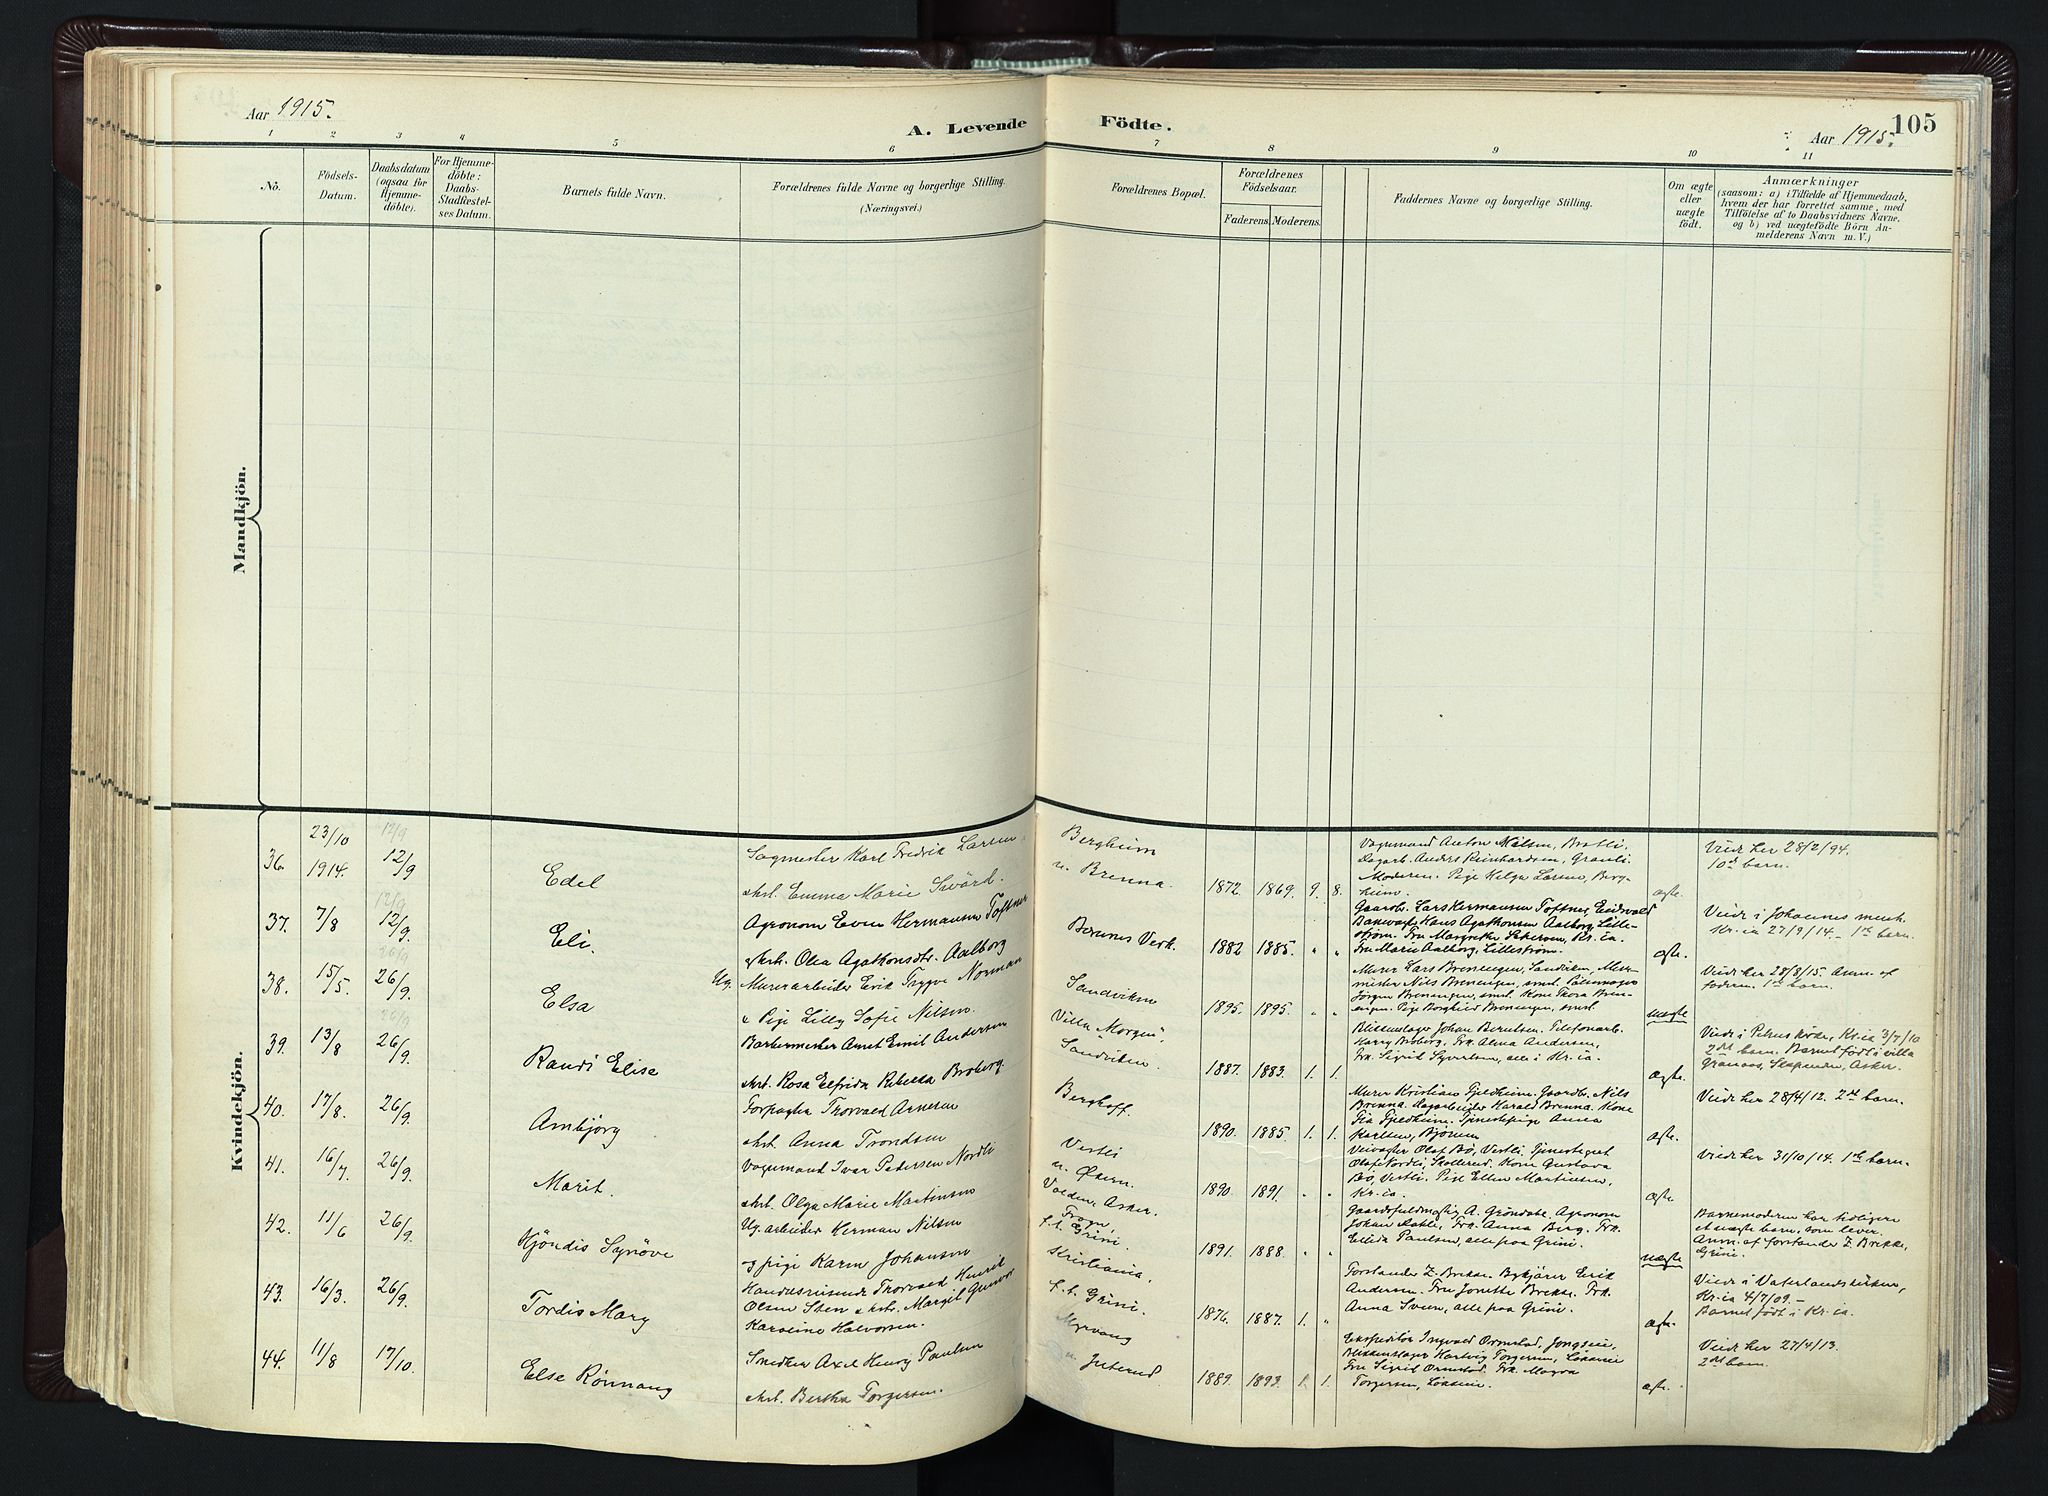 Aar 1915.
A. Levende
Födte.
105
Aar 1915.
1 2 3 4 5 6 7 8 9 10 11
No.
Födsels-
Datum.
Daabsdatum
(ogsaa for
Hjemme-
döbte).
For Hjemme-
döbte:
Daabs-
Stadfæstel-
ses Datum.
Barnets fulde Navn.
Forældrenes fulde Navne og borgerlige Stilling.
(Næringsvei.)
Forældrenes Bopæl.
Forældrenes
Födselsaar.
Faderens. Moderens.
Faddernes Navne og borgerlige Stilling.
Om ægte
eller
uægte
födt.
Anmærkninger
(saasom: a) i Tilfælde af Hjemmedaab,
hvem der har forrettet samme, med
Tilföielse af to Daabsvidners Navne,
og b) ved uægtefödte Börn An-
melderens Navn m. V.)
Mandkjön.
Kvindekjön.
36. 23/10 1914. 12/9
Edel
Sagmester Karl Fredrik Larsen
Hst. Emma Marie Swärd.
Bergheim
u. Brenna.
1872. 1869. 9. 8.
Vognmand Anton Nilsen,
Dagarb. Anders Reinhardsen,
Moderen. Pige Helga Larsen, Berg-
heim.
ægte.
Viedt her 28/2/94.
10de barn.
37. 7/8 12/9
Eli.
Agronom Even Hermansen Toftner
Hst. Olea Agathonsdtr. Aalborg
Bærums Verk.
1882 1885. " "
Gaardb. Lars Hermansen Toftner, Eidsvold
Banevogter Hans Agathonsen Aalborg, Lille-
strøm. Fru Margrethe Kr.ia.
Fru Marie Aalborg, Lillestrøm.
ægte.
Viedt i Johannes menh.
Kr.ia 27/9/14. – 1ste barn.
38. 15/5. 26/9.
Elsa
Ug. Murerarbeider Erik Trygve Norman
& Pige Lilly Sofie Nilsen.
Sandviken
1895. 1895. " "
Murer Lars Brenengen, Sandviken, Murer-
mester Nils Brenengen, smst.
Jörgen Brenengen, smst. Kone Thora Bren-
engen. Pige Borghild Brenengen, smst.
uægte
Viedt her 28/8/15. Anm. af
faderen. 1ste barn.
39. 13/8 26/9.
Randi Elise
Barbermester Emil Andersen
Hst. Rosa Elfrida Rebecca Broberg.
Villa "Morgen",
Sandviken.
1887. 1883. 1. 1.
Blikkenslager Johan Berntsen. Telefonarb.
Harry Broberg. Frk. Alma Andersen,
Frk. Sigrid Syvertsen, alle i Kr.ia.
ægte.
Viedt i Petrus kirke, Kr.ia 3/7/10
2det barn. Barnet födt i villa
Asker.
40. 17/8. 26/9.
Arnbjörg
Forpagter Thorvald Arnesen
Hst. Anna Trondsen
Berghoff.
1890. 1885. 1. 1.
Murer Kristian Fjeldheim. Gaardb. Nils
Brenna. Dagarbeider Harald Brenna. Kone
Fia Fjeldheim. Tjenestepige Anna
Karlsen, Bjönnes
ægte.
Viedt her 28/4/12. 2det barn.
41. 16/7. 26/9.
Marit.
Vognmand Ivar Pedersen Nordli
Hst. Olga Marie Martinsen
Vestli
u. Østern.
1890. 1891. " "
Veivogter Olaf Bö, Vestli, Tjenestegut
Olaf Nordli, Skollerud. Kone Gustava
Bö, Vestli. Pige Ellen Martinsen,
Kr.ia.
ægte
Viedt her 31/10/14. 1ste barn.
42. 11/6 26/9.
Hjördis Synöve
Ug. arbeider Herman Nilsen
& pige Karen Johansen
Valden, Asker.
Frogn,
f. t. Grini.
1891. 1888. " "
Gaardsfuldmægtig A. Gröndahl. Agronom
Johan Frk. Anna Berg. Frk.
Elida Paulsen, alle paa Grini.
uægte
Barnemoderen har tidligere
et uægte barn, som lever.
Anm. af forstander Z. Brekke,
Grini.
43. 16/3. 26/9.
Tordis Mary
Handelsreisende Thorvald Henrik
Olsen Sten & Hst. Margit
Karoline Halvorsen.
Kristiania,
f. t. Grini.
1876. 1887. 1. "
Forstander Z. Brekke. Bykjører Erik
Andersen. Fru Jonette Brekke. Frk.
Anna Sveen, alle paa Grini.
ægte.
Viedt i Vaterlands kirke,
Kr.ia 4/7/09. –
Barnet födt i Kr.ia.
44. 11/8 17/10.
Else Rönnaug
Snedker Axel Henry Paulsen
Hst. Bertha Torgersen.
Myrvang
u. Juterud
1889. 1893. 1. 1.
Ekspeditör Ingvald Ormstad,
Blikkenslager Hartvig Torgersen,
Fru Sigrid Ormstad. Frk. Magda
Torgersen,
ægte.
Viedt her 27/4/13.
2det barn.